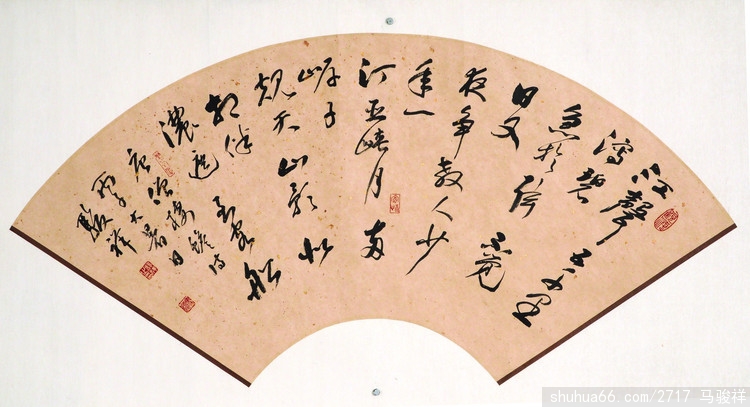 江聲五十里
瀉碧
急於弦不覺
日又
夜爭教人少
年一
汀巫峽月兩
岸子
規天山影似
相伴
濃遮到曉船
唐僧栖蟾詩
丙子大暑日
駿祥
shuhua66.com/2717 马骏祥